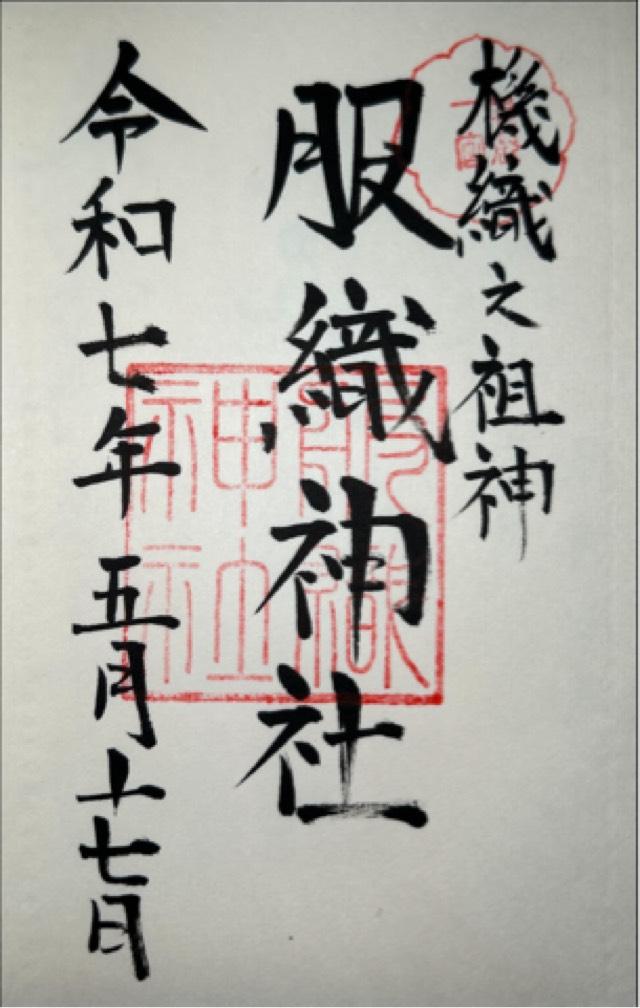 機織之祖神
服織神社
令和七年五月十七日
服織神社